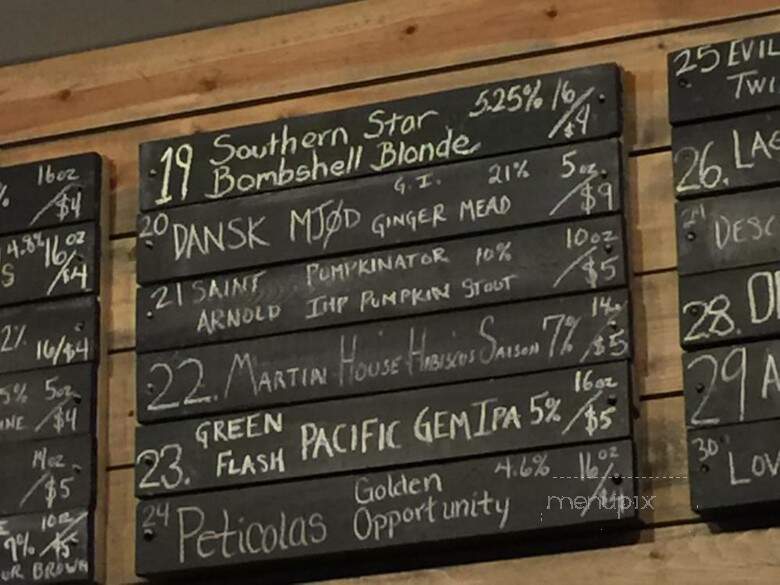 16oz
% /$4
4.8% 16oz
S /$4
2% 16/$4
5% 5oz
INE /$4
14oz
/$5
10oz
9% /$5
UR BROWN
19 Southern Star 5.25% 16
Bombshell Blonde /$4
20 DANSK MJØD G.I. 21% 5oz
GINGER MEAD /$9
21 SAINT PUMPKINATOR 10% 10oz
ARNOLD IMP PUMPKIN STOUT /$5
22. MARTIN HOUSE HIBISCUS SAISON 7% 14oz /$5
23. GREEN FLASH PACIFIC GEM IPA 5% 16oz /$5
24 Peticolas Golden Opportunity 4.6% 16oz
menupix
25 EVIL
TWI
26. LAG
DESC
28.
29 A
30 LOV